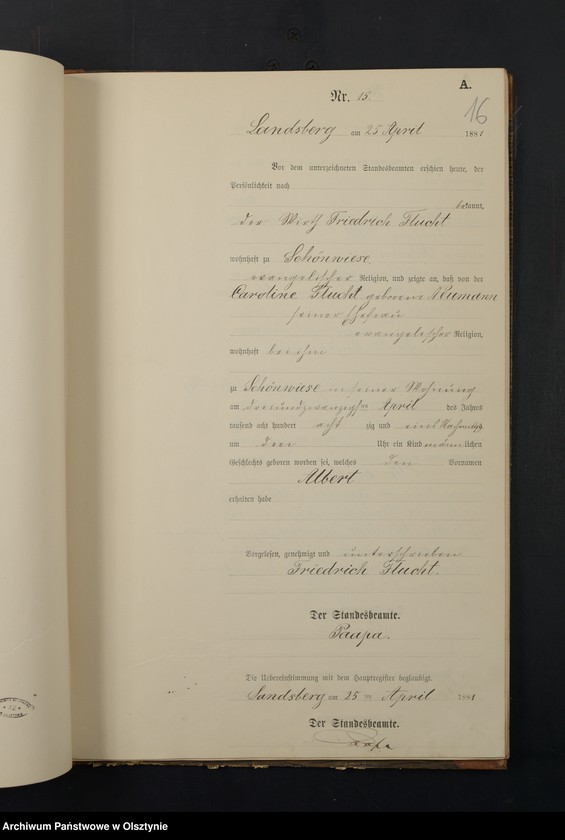 A.
16
Nr. 15.
Landsberg am 25 April 1881
Vor dem unterzeichneten Standesbeamten erschien heute, der
Persönlichkeit nach
bekannt,
der Wirth Friedrich Flucht
wohnhaft zu Schönwiese
evangelischer Religion, und zeigte an, daß von der
Caroline Flucht geborene Neumann
seiner Ehefrau
evangelischer Religion,
wohnhaft bei ihm
zu Schönwiese in seiner Wohnung
am dreiundzwanzigsten April des Jahres
tausend acht hundert acht zig und eins Nachmittags
um drei Uhr ein Kind männlichen
Geschlechts geboren worden sei, welches den Vornamen
Albert
erhalten habe
Vorgelesen, genehmigt und unterschrieben
Friedrich Flucht.
Der Standesbeamte.
Paapa.
Die Uebereinstimmung mit dem Hauptregister beglaubigt.
Landsberg am 25 ten April 1881
Der Standesbeamte.
Paapa
Archiwum Państwowe w Olsztynie